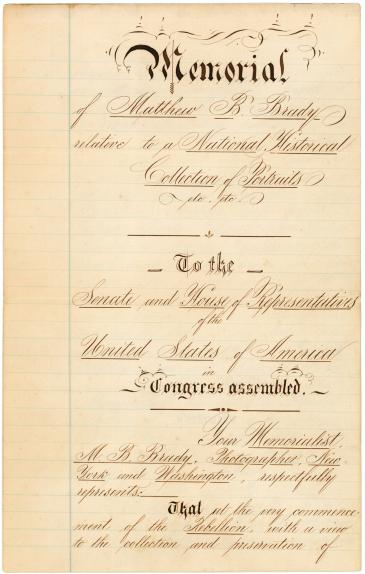 Memorial
of Matthew B. Brady
relative to a National Historical
Collection of Portraits
etc. etc.
To the
Senate and House of Representatives
of the
United States of America
in
Congress assembled.
Your Memorialist,
M. B. Brady, Photographer, New
York and Washington, respectfully
represents:
That at the very commence
ment of the Rebellion, with a view
to the collection and preservation of